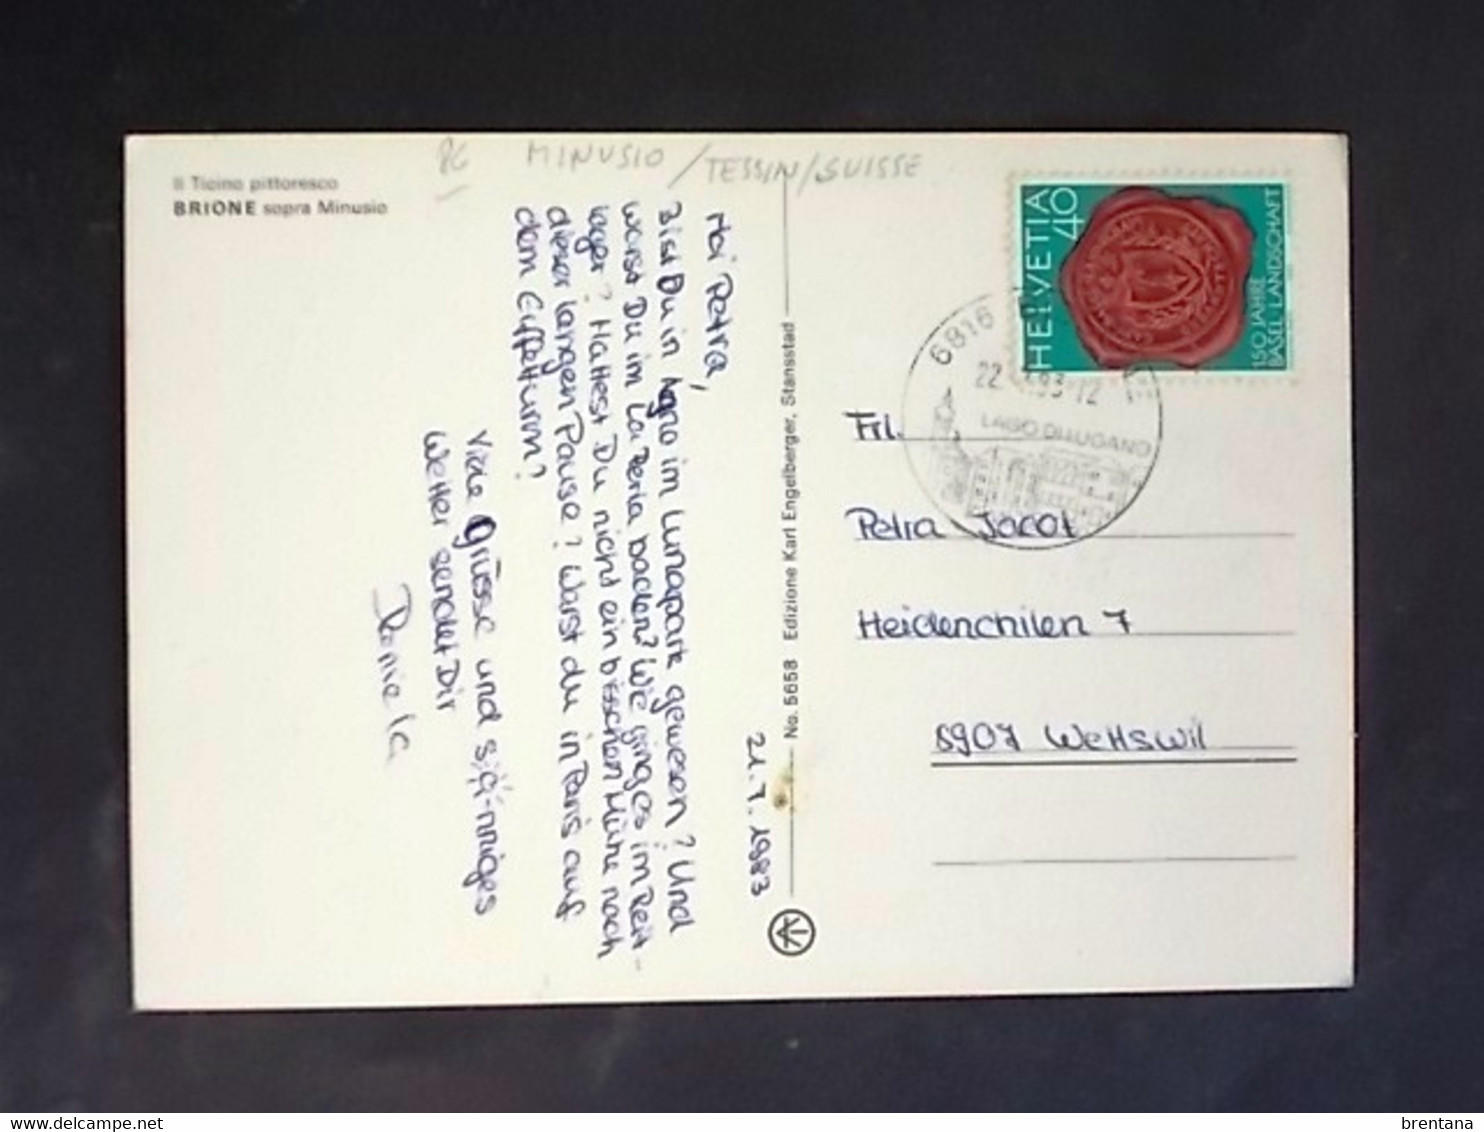 Il Ticino pittoresco
BRIONE sopra Minusio
PG MINUSIO / TESSIN / SUISSE
21.7.1983
Hoi Petra,
Bist Du in Agno im Lunapark gewesen? Und
warst Du im La Perla baden? Wie ging es im Reit-
lager? Hattest Du nicht ein bisschen Mühe nach
dieser langen Pause? Warst du in Paris auf
dem Eiffelturm?
Viele Grüsse und sonniges
Wetter sendet Dir
Daniela
No. 5658 Edizione Karl Engelberger, Stansstad
HELVETIA 40
150 JAHRE
BASEL-LANDSCHAFT
6816
22 83-12
LAGO DI LUGANO
Frl.
Petra Jacot
Heidenchilen 7
8907 Wettswil
brentana